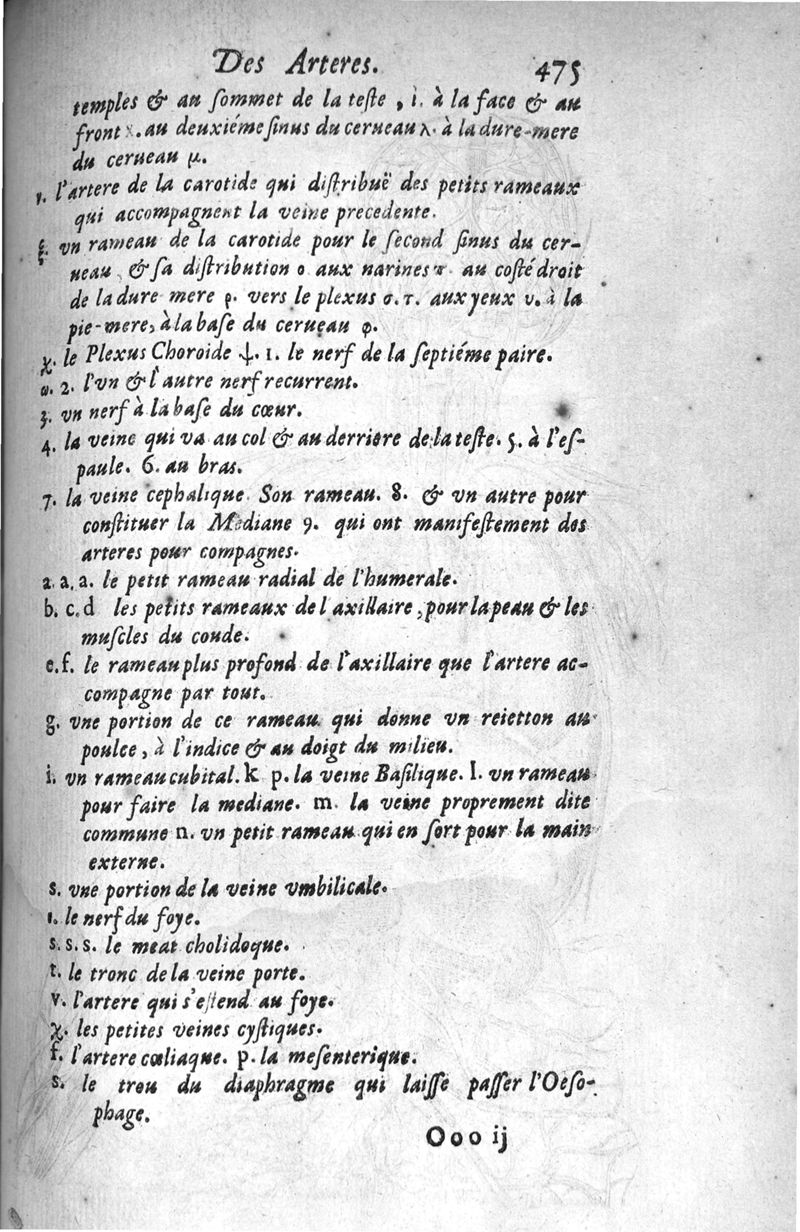 Des Arteres. 475
temples & au ſommet de la teſte, i. à la face & au
front ϰ. au deuxiéme ſinus du cerueau λ. à la dure-mere
du cerueau μ.
ν. l'artere de la carotide qui diſtribuë des petits rameaux
qui accompagnent la veine precedente.
ξ. vn rameau de la carotide pour le ſecond ſinus du cer-
ueau, & ſa diſtribution ο aux narines π au coſté droit
de la dure mere ρ. vers le plexus σ. τ. aux yeux υ. à la
pie-mere, à la baſe du cerueau φ.
χ. le Plexus Choroide ψ. 1. le nerf de la ſeptiéme paire.
ω. 2. l'vn & l'autre nerf recurrent.
3. vn nerf à la baſe du cœur.
4. la veine qui va au col & au derriere de la teſte. 5. à l'eſ-
paule. 6. au bras.
7. la veine cephalique. Son rameau. 8. & vn autre pour
conſtituer la Mediane 9. qui ont manifeſtement des
arteres pour compagnes.
a. a, a. le petit rameau radial de l'humerale.
b. c. d les petits rameaux de l axillaire, pour la peau & les
muſcles du coude.
e. f. le rameau plus profond de l'axillaire que l'artere ac-
compagne par tout.
g. vne portion de ce rameau qui donne vn reietton au
poulce, à l'indice & au doigt du milieu.
i. vn rameau cubital. k p. la veine Baſilique. l. vn rameau
pour faire la mediane. m. la veine proprement dite
commune n. vn petit rameau qui en ſort pour la main
externe.
s. vne portion de la veine vmbilicale.
ι. le nerf du foye.
s. s. s. le meat cholidoque.
t. le tronc de la veine porte.
v. l'artere qui s'eſtend au foye.
χ. les petites veines cyſtiques.
f. l'artere cœliaque. p. la meſenterique.
s. le trou du diaphragme qui laiſſe paſſer l'Oeſo-
phage.
Ooo ij